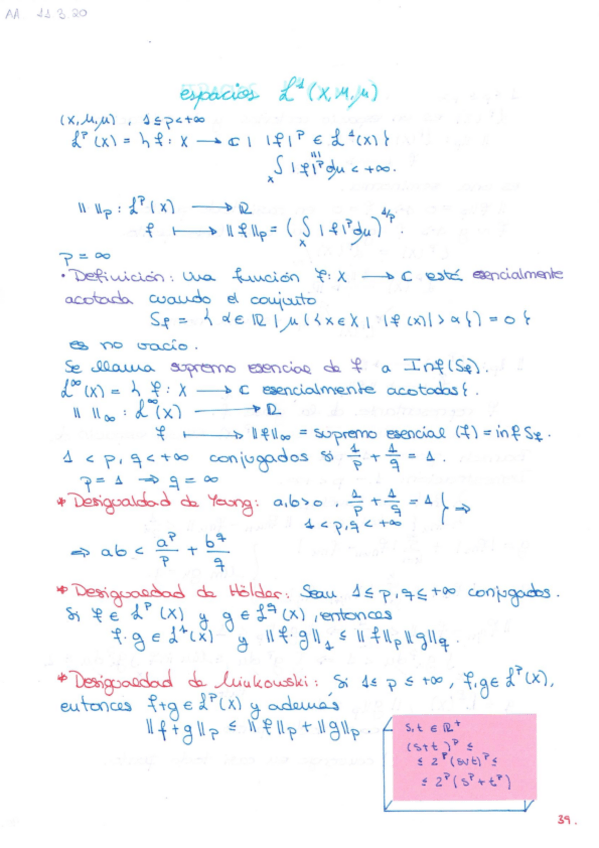 AA 11.3.20
espacios ℒ¹(X,M,μ)
(X,M,μ), 1≤p<+∞
ℒᵖ(X) = { f: X → ℂ | |f|ᵖ ∈ ℒ¹(X) }
∫_X |f|ᵖ dμ < +∞.
‖ ‖_p : ℒᵖ(X) → ℝ
f ↦ ‖f‖_p = ( ∫_X |f|ᵖ dμ )^{1/p}.
p = ∞
· Definición: Una función f: X → ℂ está esencialmente
acotada cuando el conjunto
S_f = { α ∈ ℝ | μ({x ∈ X | |f(x)| > α}) = 0 }
es no vacío.
Se llama supremo esencial de f a Inf(S_f).
ℒ^∞(X) = { f: X → ℂ esencialmente acotadas }.
‖ ‖_∞ : ℒ^∞(X) → ℝ
f ↦ ‖f‖_∞ = supremo esencial (f) = inf S_f.
1 < p, q < +∞ conjugados si 1/p + 1/q = 1.
p = 1 → q = ∞
* Desigualdad de Young: a,b>0, 1/p + 1/q = 1 } ⇒
1 < p,q < +∞
⇒ ab < aᵖ/p + b^q/q
* Desigualdad de Hölder: Sean 1≤p,q≤+∞ conjugados.
Si f ∈ ℒᵖ(X) y g ∈ ℒ^q(X), entonces
f·g ∈ ℒ¹(X) y ‖f·g‖₁ ≤ ‖f‖_p ‖g‖_q.
* Desigualdad de Minkowski: Si 1≤p≤+∞, f,g ∈ ℒᵖ(X),
entonces f+g ∈ ℒᵖ(X) y además
‖f+g‖_p ≤ ‖f‖_p + ‖g‖_p.
s,t ∈ ℝ⁺
(s+t)ᵖ ≤
≤ 2ᵖ(s∨t)ᵖ ≤
≤ 2ᵖ(sᵖ+tᵖ)
39.